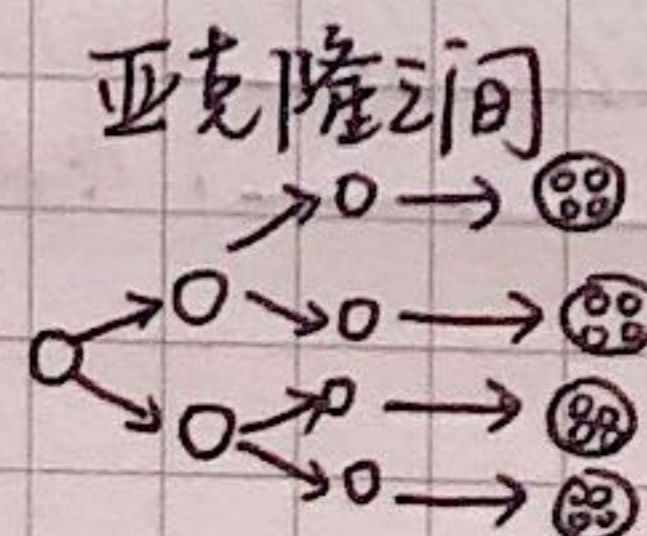 亚克隆之间